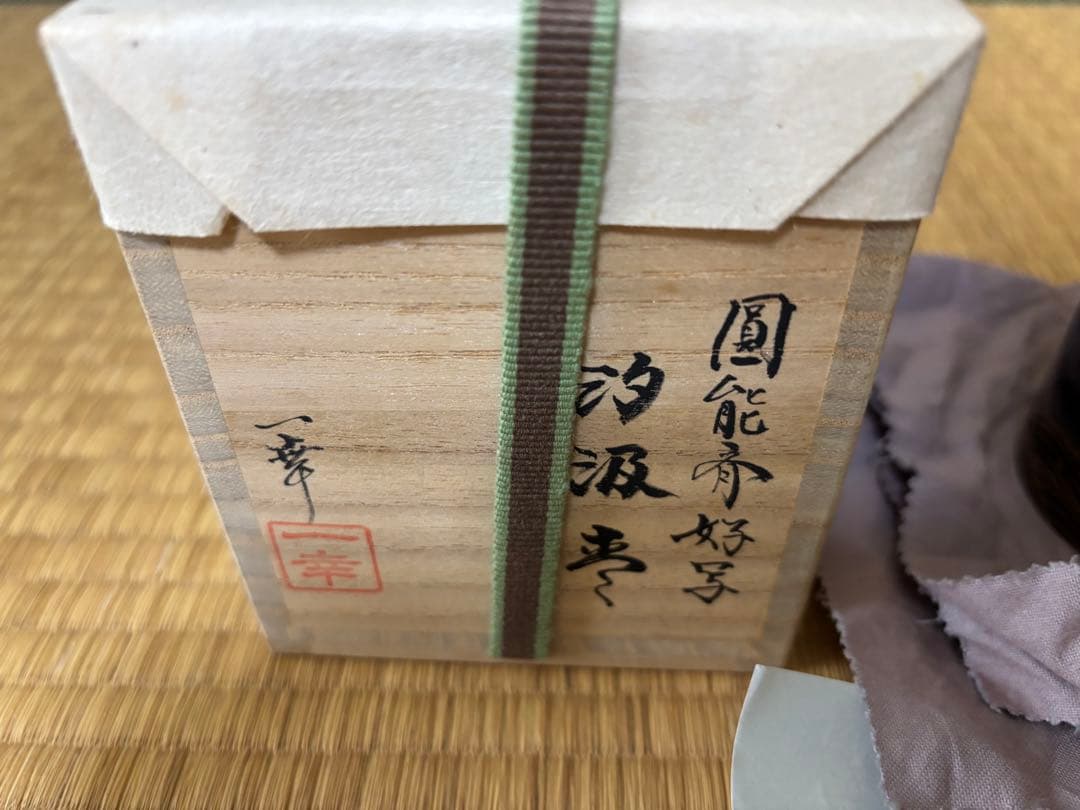 圓能斎好写
汐汲棗
一幸
一幸